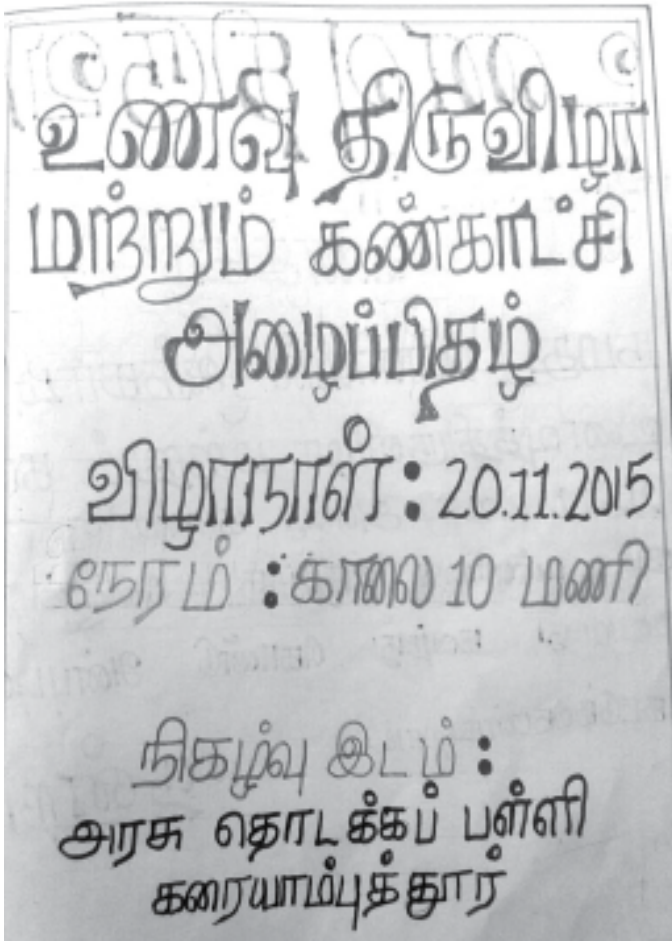 உணவு திருவிழா
மற்றும் கண்காட்சி
அழைப்பிதழ்
விழாநாள் : 20.11.2015
நேரம் : காலை 10 மணி
நிகழ்வு இடம் :
அரசு தொடக்கப் பள்ளி
கரையாம்புத்தூர்